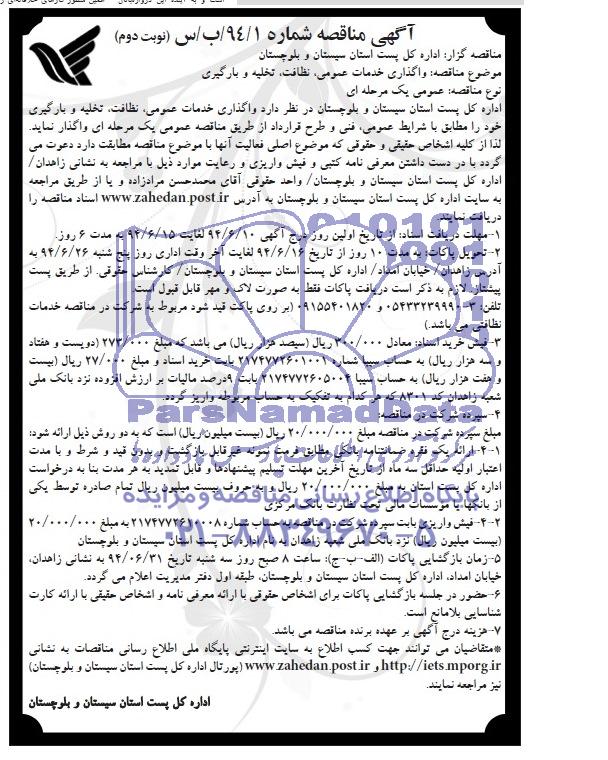 آگهی مناقصه شماره ۹٤/۱/ب/س (نوبت دوم)
مناقصه گزار: اداره کل پست استان سیستان و بلوچستان
موضوع مناقصه: واگذاری خدمات عمومی، نظافت، تخلیه و بارگیری
نوع مناقصه: عمومی یک مرحله ای
اداره کل پست استان سیستان و بلوچستان در نظر دارد واگذاری خدمات عمومی، نظافت، تخلیه و بارگیری
خود را مطابق با شرایط عمومی، فنی و طرح قرارداد از طریق مناقصه عمومی یک مرحله ای واگذار نماید.
لذا از کلیه اشخاص حقیقی و حقوقی که موضوع اصلی فعالیت آنها با موضوع مناقصه مطابقت دارد دعوت می
گردد با در دست داشتن معرفی نامه کتبی و فیش واریزی و رعایت موارد ذیل با مراجعه به نشانی زاهدان/
اداره کل پست استان سیستان و بلوچستان/ واحد حقوقی آقای محمدحسن مرادزاده و یا از طریق مراجعه
به سایت اداره کل پست استان سیستان و بلوچستان به آدرس www.zahedan.post.ir اسناد مناقصه را
دریافت نمایند.
۱-مهلت دریافت اسناد: از تاریخ اولین روز درج آگهی ۹٤/٦/۱۰ لغایت ۹٤/٦/۱٥ به مدت ٦ روز.
۲-تحویل پاکات: به مدت ۱۰ روز از تاریخ ۹٤/٦/۱٦ لغایت آخر وقت اداری روز پنج شنبه ۹٤/٦/۲٦ به
آدرس زاهدان/ خیابان امداد/ اداره کل پست استان سیستان و بلوچستان/ کارشناس حقوقی. از طریق پست
پیشتاز. لازم به ذکر است دریافت پاکات فقط به صورت لاک و مهر قابل قبول است.
تلفن: ۳-۰٥٤۳۳۲۳۹۹۹۰ و ۰۹۱٥٥٤۰۱۸۲۰ (بر روی پاکت قید شود مربوط به شرکت در مناقصه خدمات
نظافتی می باشد.)
۳-فیش خرید اسناد: معادل ۳۰۰/۰۰۰ ریال (سیصد هزار ریال) می باشد که مبلغ ۲۷۳/۰۰۰ (دویست و هفتاد
و سه هزار ریال) به حساب سیبا شماره ۲۱۷٤۷۷۲٦۰۱۰۰۱ بابت خرید اسناد و مبلغ ۲۷/۰۰۰ ریال (بیست
و هفت هزار ریال) به حساب سیبا ۲۱۷٤۷۷۲٦۰٥۰۰٤ بابت ۹درصد مالیات بر ارزش افزوده نزد بانک ملی
شعبه زاهدان کد ۸۳۰۱ که هر کدام به تفکیک به حساب مربوطه واریز گردد.
٤-سپرده شرکت در مناقصه:
مبلغ سپرده شرکت در مناقصه مبلغ ۲۰/۰۰۰/۰۰۰ ریال (بیست میلیون ریال) است که به دو روش ذیل ارائه شود:
۱-٤-ارائه یک فقره ضمانتنامه بانکی مطابق فرمت نمونه غیرقابل بازگشت و بدون قید و شرط و با مدت
اعتبار اولیه حداقل سه ماه از تاریخ آخرین مهلت تسلیم پیشنهادها و قابل تمدید به هر مدت بنا به درخواست
اداره کل پست استان به مبلغ ۲۰/۰۰۰/۰۰۰ ریال و به حروف بیست میلیون ریال تمام صادره توسط یکی
از بانکها یا موسسات مالی تحت نظارت بانک مرکزی
۲-٤- فیش واریزی بابت سپرده شرکت در مناقصه به حساب شماره ۲۱۷٤۷۷۲٦۱۰۰۰۸ به مبلغ ۲۰/۰۰۰/۰۰۰
(بیست میلیون ریال) نزد بانک ملی شعبه زاهدان به نام اداره کل پست استان سیستان و بلوچستان
٥-زمان بازگشایی پاکات (الف-ب-ج): ساعت ۸ صبح روز سه شنبه تاریخ ۹٤/۰٦/۳۱ به نشانی زاهدان،
خیابان امداد، اداره کل پست استان سیستان و بلوچستان، طبقه اول دفتر مدیریت اعلام می گردد.
٦-حضور در جلسه بازگشایی پاکات برای اشخاص حقوقی با ارائه معرفی نامه و اشخاص حقیقی با ارائه کارت
شناسایی بلامانع است.
۷-هزینه درج آگهی بر عهده برنده مناقصه می باشد.
*متقاضیان می توانند جهت کسب اطلاع به سایت اینترنتی پایگاه ملی اطلاع رسانی مناقصات به نشانی
http://iets.mporg.ir و www.zahedan.post.ir (پورتال اداره کل پست استان سیستان و بلوچستان)
نیز مراجعه نمایند.
اداره کل پست استان سیستان و بلوچستان
ParsNamadData
پایگاه اطلاع رسانی مناقصه و مزایده
۰۲۱-۸۸۳٤۹٦۷۰-٥